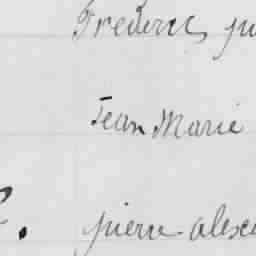 Frederic ju
Jean Marie
pierre alex